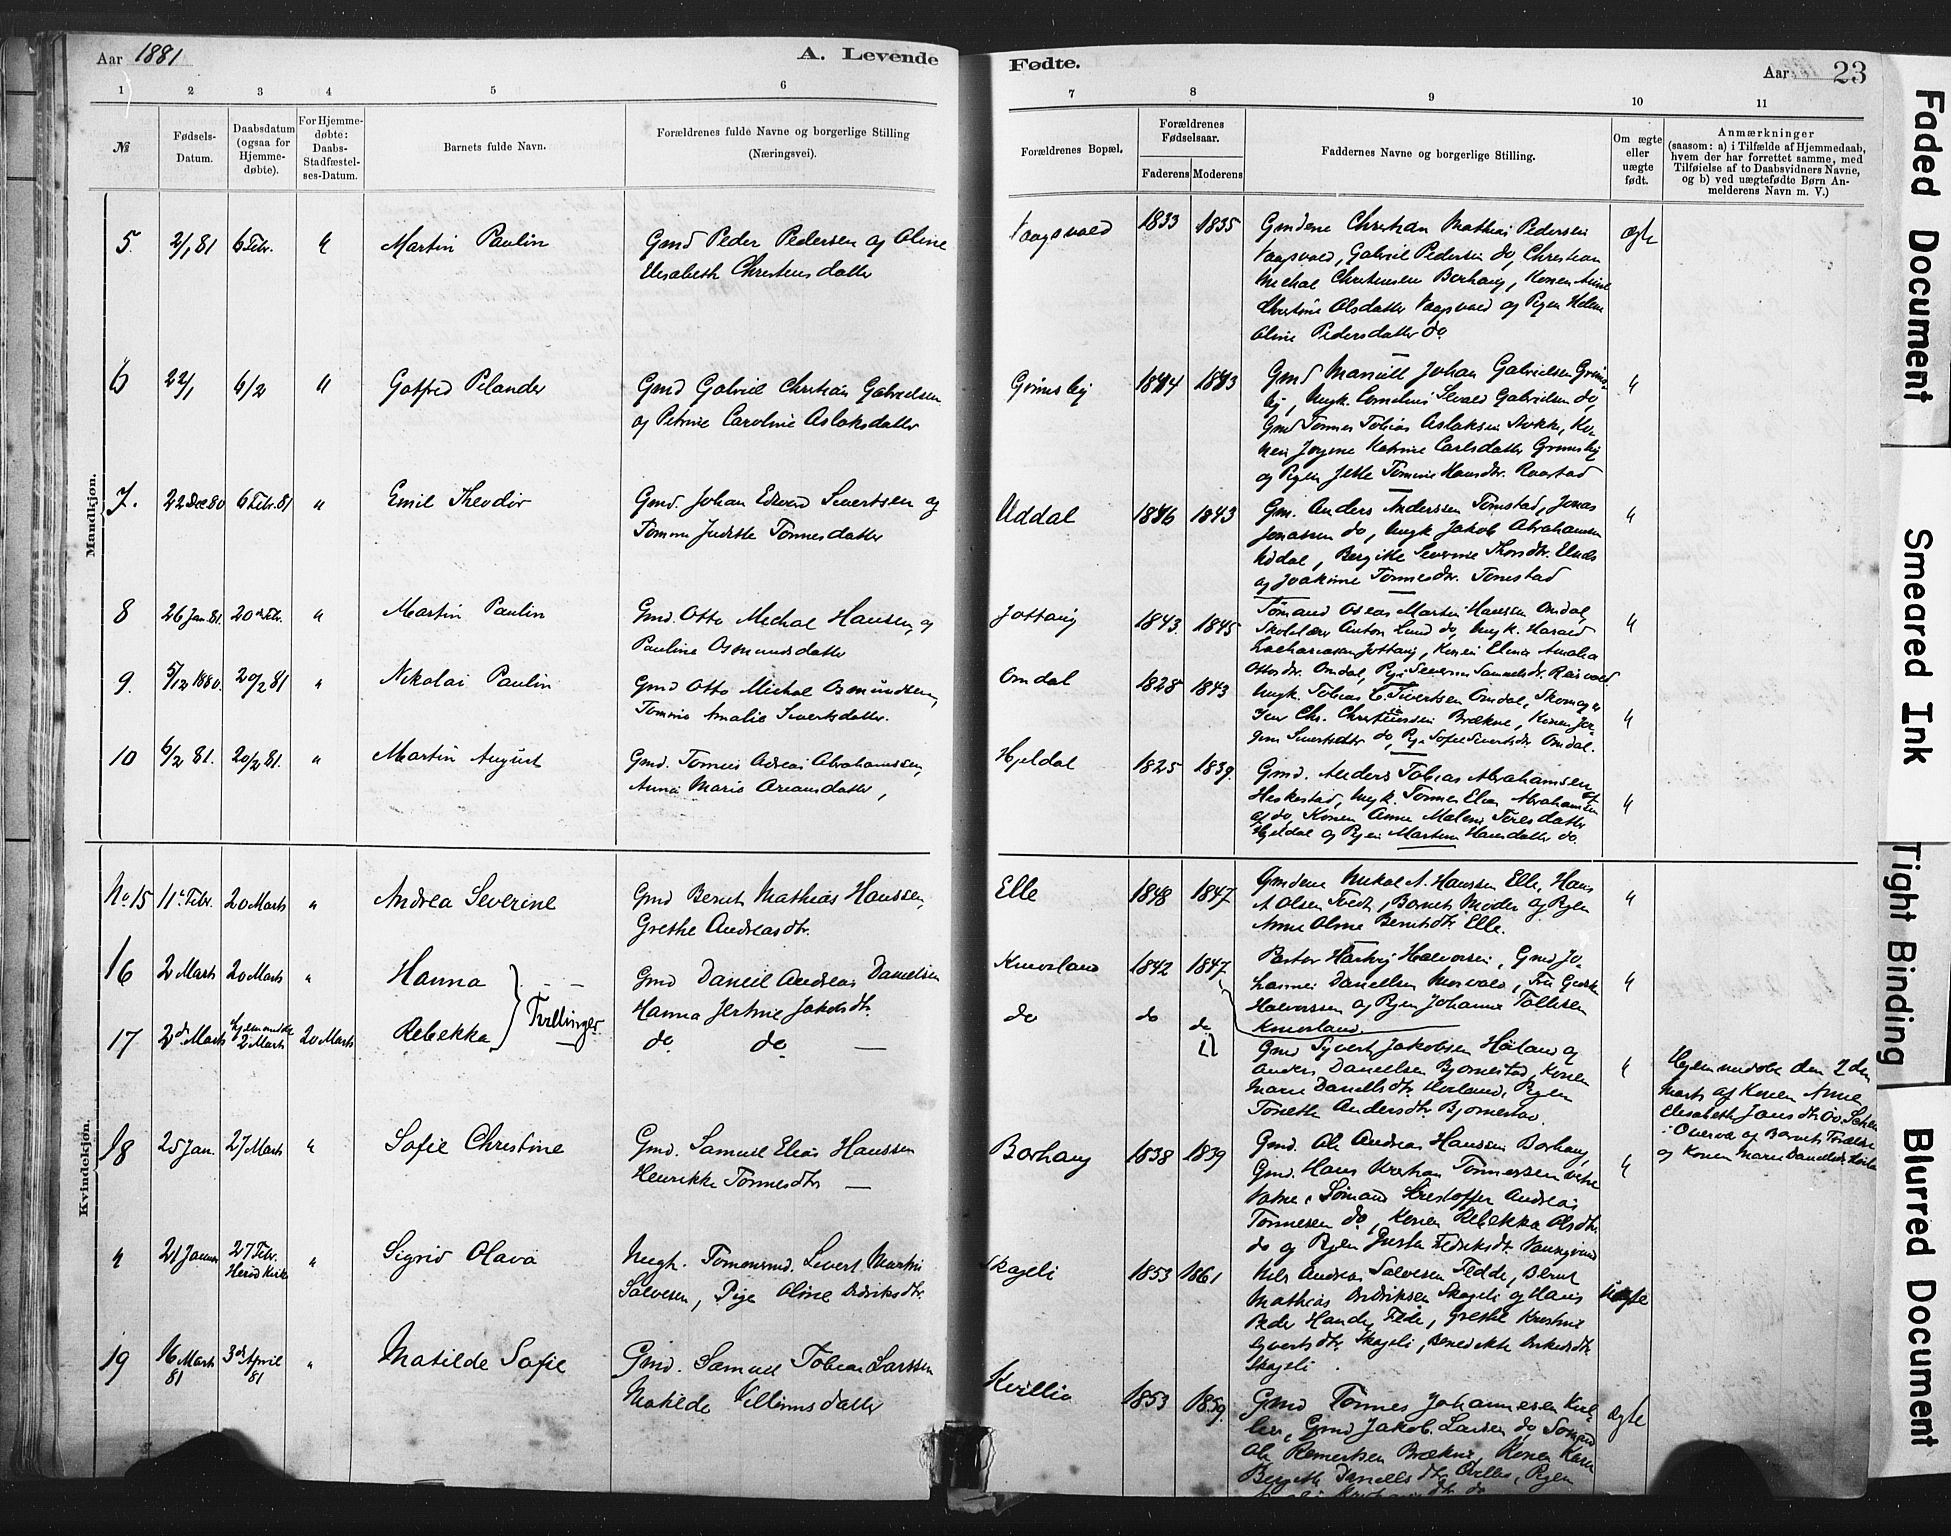 Aar 1881
A. Levende
Fødte.
Aar 23
1 2 3 4 5 6
7 8 9 10 11
№
Fødsels-
Datum.
Daabsdatum
(ogsaa for
Hjemme-
døbte).
For Hjemme-
døbte:
Daabs-
Stadfæstel-
ses-Datum.
Barnets fulde Navn.
Forældrenes fulde Navne og borgerlige Stilling
(Næringsvei).
Forældrenes Bopæl.
Forældrenes
Fødselsaar.
Faderens Moderens
Faddernes Navne og borgerlige Stilling.
Om ægte
eller
uægte
født.
Anmærkninger
(saasom: a) i Tilfælde af Hjemmedaab,
hvem der har forrettet samme, med
Tilføielse af to Daabsvidners Navne,
og b) ved uægtefødte Børn An-
melderens Navn m. V.)
Mandkjøn.
5. 2/1 81 6 Febr. " Martin Paulin
Gmd Peder Pedersen og Oline
Elisabeth Christensdatter
Vaagsvold 1833 1835
Gmdene Christian Mathias Pedersen
Vaagsvold, Gabriel Pedersen do, Christian
Michal Christensen Borhaug, Konen
Christine Olsdatter Vaagsvold og Pigen Helene
Oline Pedersdatter do
ægte
6 22/1 6/2 " Gotfred Pelander
Gmd Gabriel Christian Gabrielsen
og Petrine Caroline Aslaksdatter
Grimsby 1844 1843
Gmd Johan Gabrielsen Grims-
by, Ungk. Cornelius Sevald Gabrielsen do,
Gmd Tønnes Tobias Aslaksen Stokke, Ko-
nen Jørgine Katrine Carlsdatter Grimsby
og Pigen Jette Tomine Hansdtr. Raastad
"
7. 22 Dec 80 6 Febr. 81 " Emil Theodor
Gmd. Johan Edvard Sivertsen og
Tomine Judithe Tønnesdatter
Uddal 1846 1843
Gm. Anders Anderssen Tomstad, Jonas
Jonassen do, Ungk Jakob Abrahamsen
Uddal, Bergitte Severine Thorsdtr.
og Joakime Tønnesdtr. Tomstad
"
8 26 Jan. 81. 20de Febr. " Martin Paulin
Gmd. Otto Michal Hansen, og
Pauline Osmundsdatter
Jottaug 1843. 1845
Sømand Oseas Martin Hansen Omdal,
Skolelærer Anton Lund do, Ungk. Harald
Zachariasen Jottaug, Konen Elene Amalia
Ottosdtr. Omdal, Pigen Severine Samuelsdtr.
"
9. 5/12 1880. 20/2 81 " Nikolai Paulin
Gmd Otto Michal Osmundsen,
Tomine Amalie Sivertsdatter.
Omdal 1828 1843
Ungk. Tobias C. Sivertsen Omdal, Skomager
Chr. Christensen Brækne, Konen Jør-
gine Sivertsdtr do, Pige Sofie Sivertsdtr Omdal.
"
10 6/2 81. 20/2 81. " Martin August
Gmd. Tønnes Adreas Abrahamssen,
Anne Marie Ariansdatter,
Hjeldal 1825 1839.
Gmd. Anders Tobias Abrahamsen
Heskestad, Ungk. Tønnes Elias Abrahamsen
af do, Konen Anne Malene datter
Hjeldal og Pigen Martine Hansdatter do.
"
Kvindekjøn.
No 15 11te Febr. 20 Marts " Andrea Severine
Gmd Bernt Mathias Hanssen,
Grethe Andreasdtr.
Elle 1848 1847
Gmdene Mikal A. Hanssen Elle, Hans
A Olsen Tvedt, Barnets Moder og Pigen
Anne Oline Berntsdtr. Elle.
"
16 2 Marts 20 Marts " Hanna
Tvillinger
Gmd Daniel Andreas Danielsen
Hanna Jertine Jakobsdtr.
Knivsland 1842 1847
Pastor Hartvig Halvorsen, Gmd Jo-
hannes Daniellsen Mosvold, Fru
Halvorssen og Pigen Johanne Tollefsen
Knivsland.
"
17 2den Marts hjemmedøbt 2 Marts 20 Marts Rebekka
do do —
do do do
Gmd Syvert Jakobsen Høiland og
Anders Danielsen Bjørnestad, Konen
Marie Danielsdtr. Høiland, Pigen
Tonette Andersdtr. Bjørnestad.
"
Hjemmedøbt den 2den
Marts af Konen Anne
Elisabeth Jansdtr.
i og Barnets Forældre
og Konen Marie Danielsdtr Høiland
18 25 Jan. 27 Marts " Sofie Christine
Gmd. Samuel Elias Hanssen
Henrikke Tønnesdtr —
Borhaug 1838 1839
Gmd. Ole Andreas Hanssen Borhaug,
Gmd. Hans Tønnessen vestre
Vatne, Sømand Kristoffer Andreas
Tønnesen do, Konen Rebekka Olsdtr.
do og Pigen
"
" 21 Januar 27 Febr. Herod Kirke " Sigrid Olava
Ungk. Tømmermd. Sivert Martin
Salvesen, Pige Oline Didriksdtr.
Skageli 1853 1861
Nils Andreas Salvesen Fedde, Bernt
Mathias Didriksen Skageli og Hans
Peder Fede, Grethe Kristine
Syvertsdtr. Skageli, Benedikte Didriksdtr
Skageli.
uægte
19 16 Marts 81 3de April 81 " Matilde Sofie
Gmd. Samuel Tobias Larssen
Matilde Villumsdatter
Kvillia 1853 1859.
Gmd Tønnes Johannesen Kvil-
lia, Gmd Jakob Larsen do, Sømand
Ole Reinertsen Brækne, Konen Karen
Bergithe Danielsdtr. Pigen
ægte
Faded Document
Smeared Ink
Tight Binding
Blurred Document